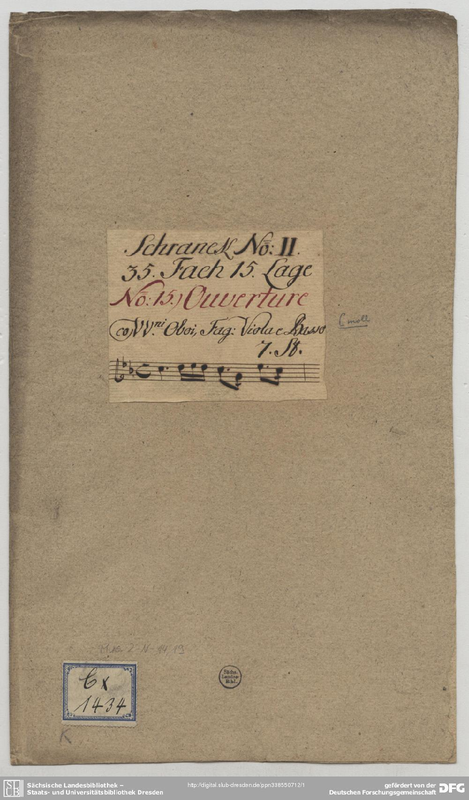 Schranck No: II.
35. Fach 15. Lage
No: 15.) Ouverture
co VV.ni Oboi, Fag: Viola e Basso
7. St.
C moll
Cx
1434
K
Sächs.
Landes-
Bibl.
Sächsische Landesbibliothek –
Staats- und Universitätsbibliothek Dresden
http://digital.slub-dresden.de/ppn338550712/1
gefördert von der
Deutschen Forschungsgemeinschaft
DFG